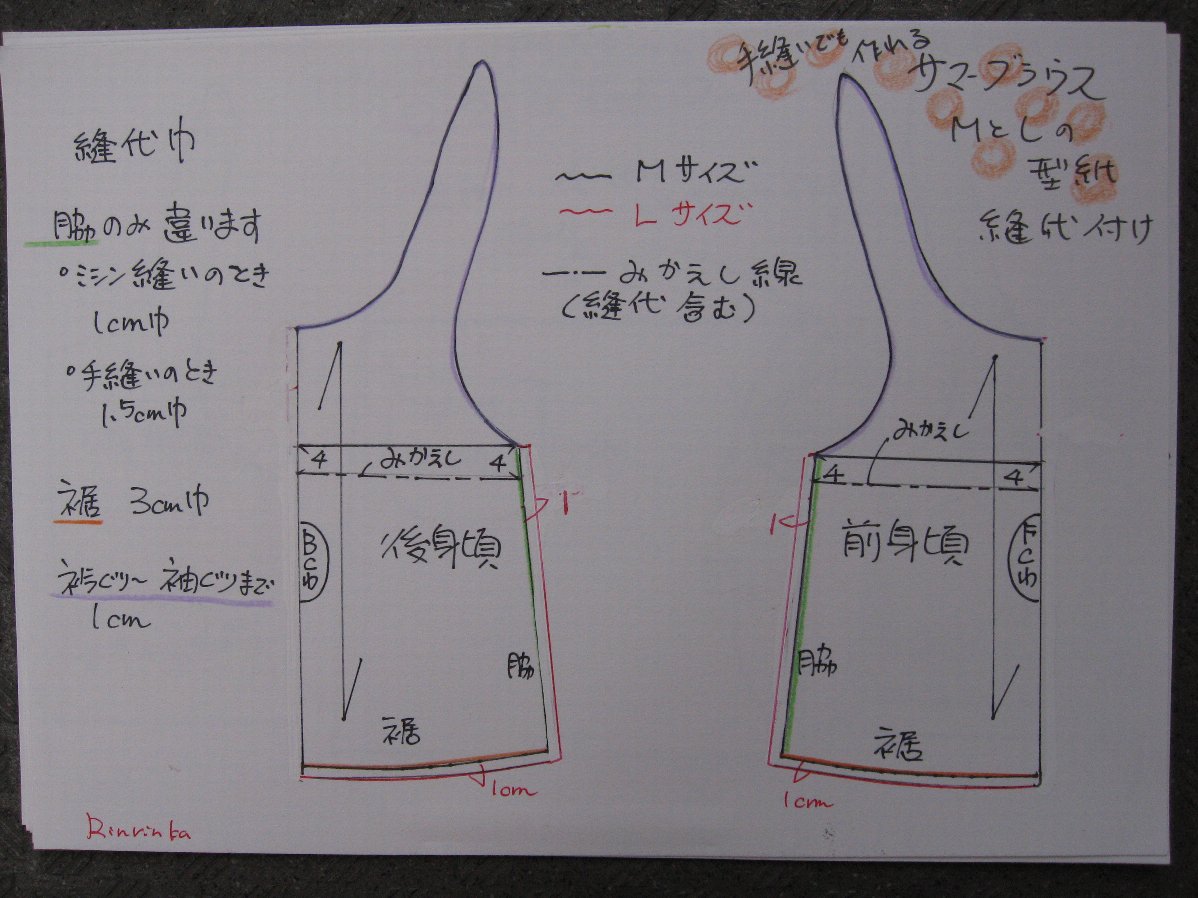 手縫いでも作れる
サマーブラウス
MとLの
型紙
縫代付け
縫代巾
脇のみ違います
°ミシン縫いのとき
1cm巾
°手縫いのとき
1.5cm巾
裾 3cm巾
衿ぐり〜袖ぐりまで
1cm
Mサイズ
Lサイズ
みかえし線
(縫代含む)
4 みかえし 4
BCわ
後身頃
1
脇
裾
1cm
みかえし
4 4
1
前身頃
FCわ
脇
裾
1cm
Rinrinka